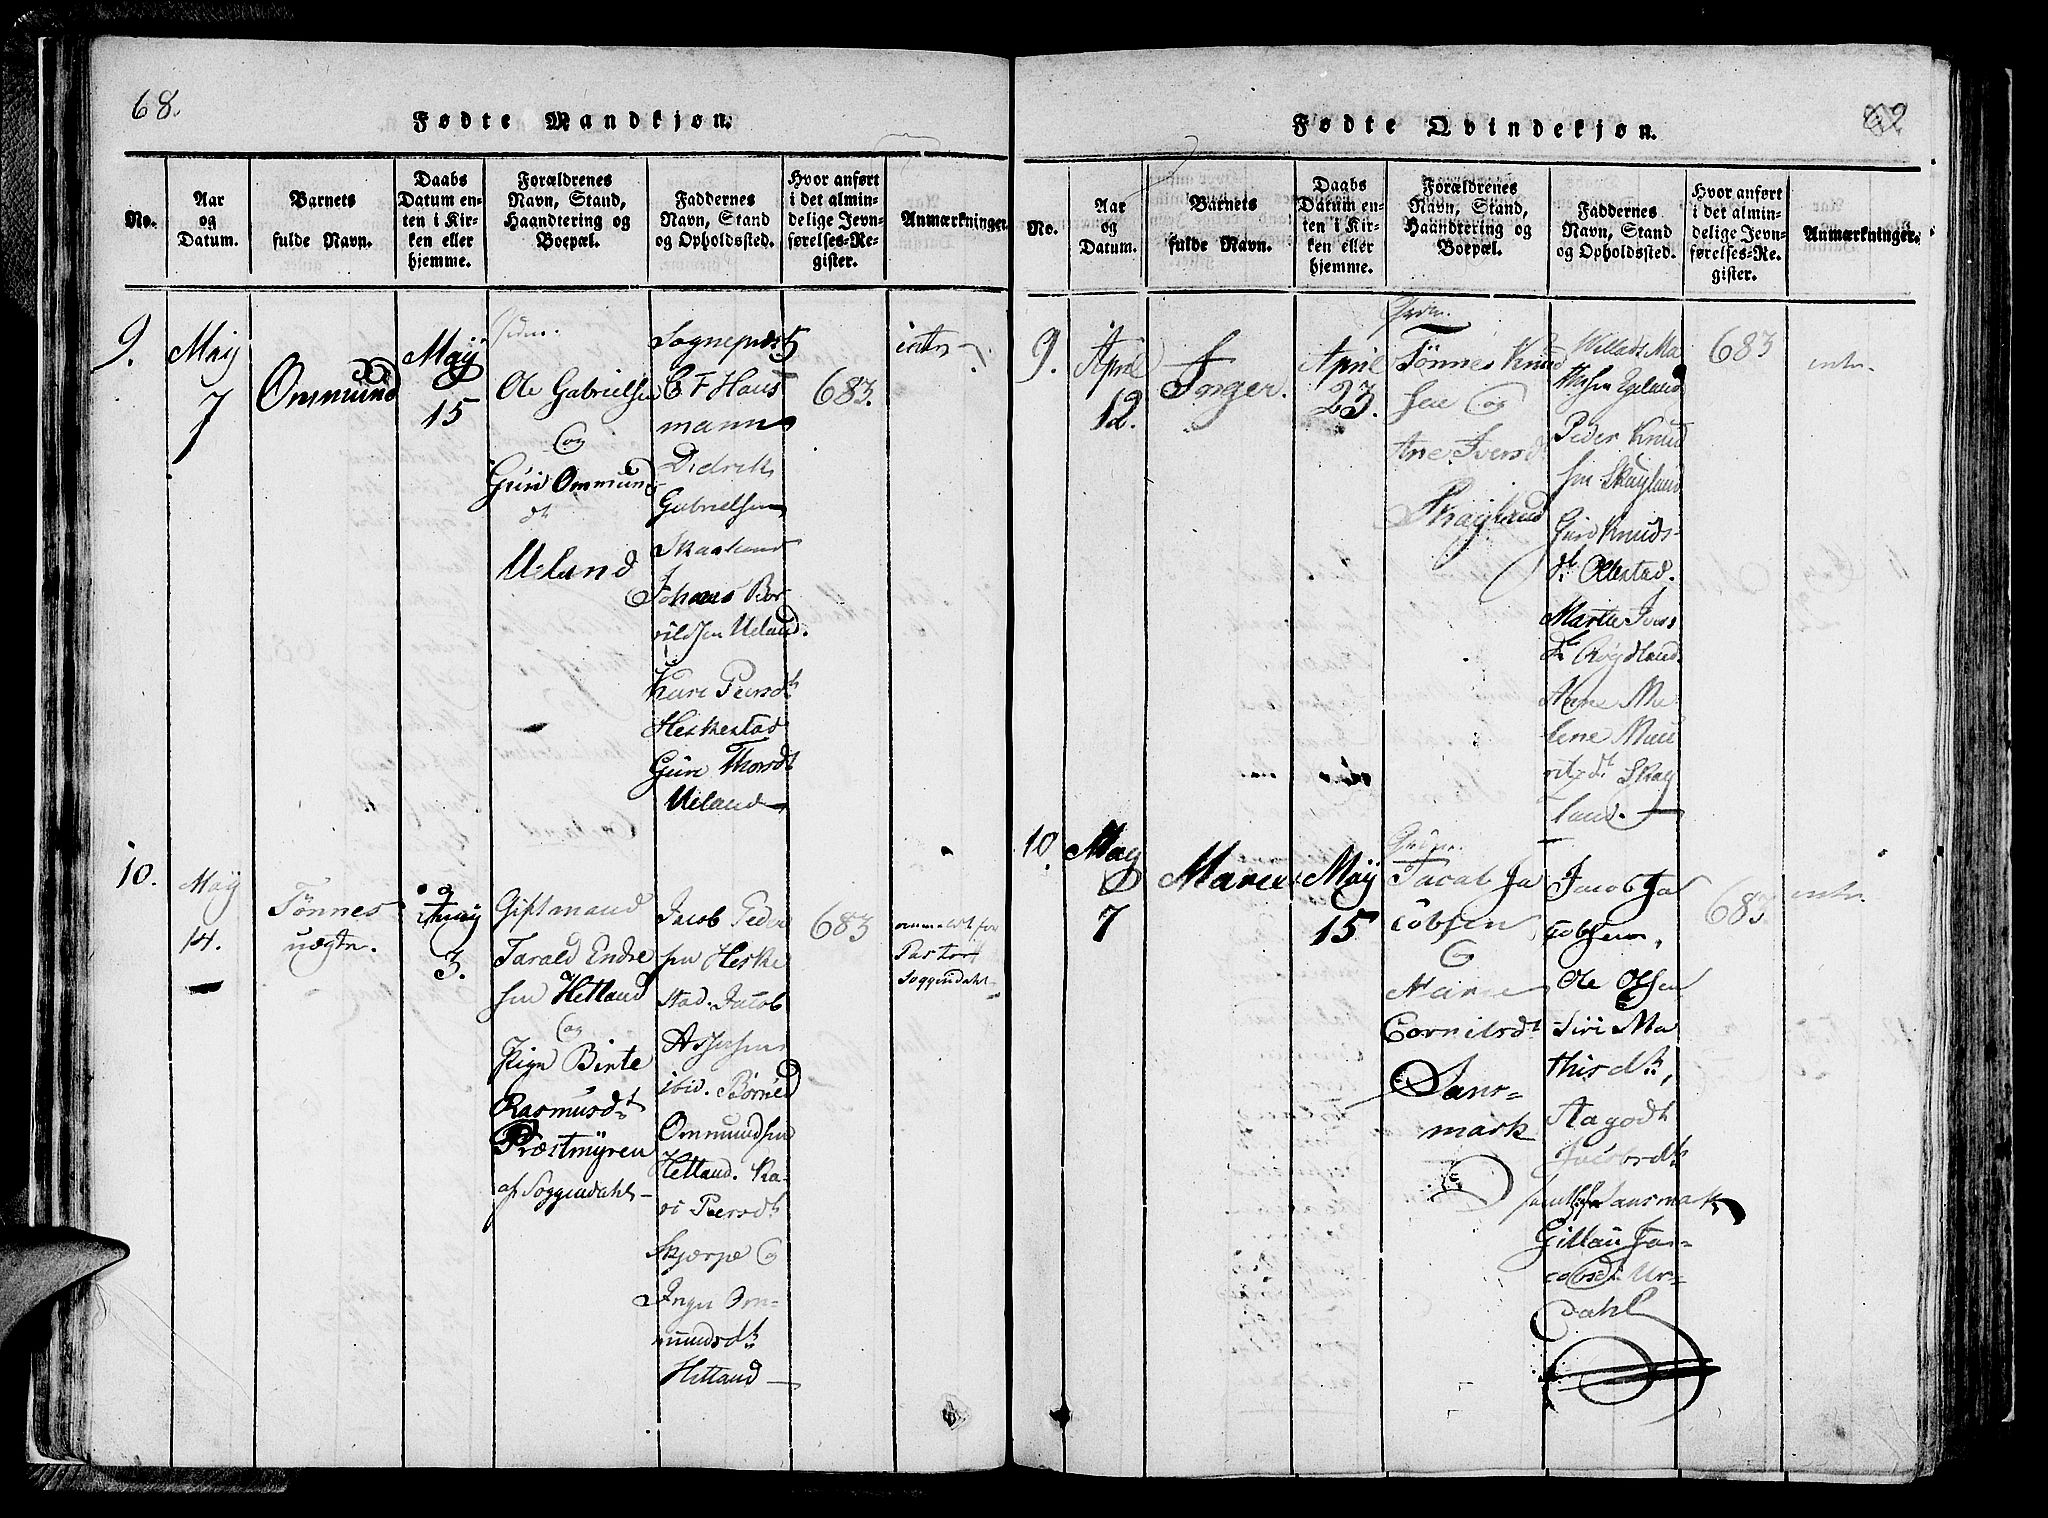 68.
Fødte Mandkjøn.
No.
Aar
og
Datum.
Barnets
fulde Navn.
Daabs
Datum en-
ten i Kir-
ken eller
hjemme.
Forældrenes
Navn, Stand,
Haandtering og
Boepæl.
Faddernes
Navn, Stand
og Opholdssted.
Hvor anført
i det almin-
delige Jevn-
førelses-Re-
gister.
Anmærkninger.
9.
May
7
Ommund
Maÿ
15
Ole Gabrielsen
og
Guri Ommund
dt
Ueland
Sognepræst
C F Haus
mann
Didrik
Gabrielsen
Skaaland
Johanes Bor-
rildsen Ueland.
Kari Peersdt
Heskestad
Guri Thorsdt
Ueland
683.
intr
10.
Maÿ
14.
Tønnes
uægte.
3.
Giftmand
Tarald Endre
sen Hetland
og
Pige Birte
Rasmusdt
Præstmyren
af Soggendahl
Jacob Peder
sen Heske
stad. Jacob
Assersen
ibid. Børild
Ommundsen
Hetland. Ka-
ri Peersdt
Skjerpe og
Inger Om-
mundsdt
Hetland
683
anmeldt for
Pastor
Soggendahl
69
Fødte Qvindekjøn.
No.
Aar
og
Datum.
Barnets
fulde Navn.
Daabs
Datum en-
ten i Kir-
ken eller
hjemme.
Forældrenes
Navn, Stand,
Haandtering og
Boepæl.
Faddernes
Navn, Stand
og Opholdssted.
Hvor anført
i det almin-
delige Jevn-
førelses-Re-
gister.
Anmærkninger.
9.
April
12.
Inger.
April
23.
Tønnes Knud
sen og
Ane Iversdt
Skayland
Willads Ma
thisen Egeland
Peder Knud
sen Skayland
Guri Knuds-
dt. Ollestad.
Marthe Ivers
dt Røydland.
Anne Ma-
lene Mau
ritzdt Skay
land.
683
intr.
10.
May
7
Maren
Maÿ
15
Jacob Ja
cobsen
&
Maren
Cornilsdt
Sans-
mark
Jacob Ja
cobsen,
Ole Olsen
Siri Ma
thisdt,
Aagodt
Jacobsdt
samtl. fra Sansmark
Gillau Ja-
cobsdt Ur-
dahl
683
intr.